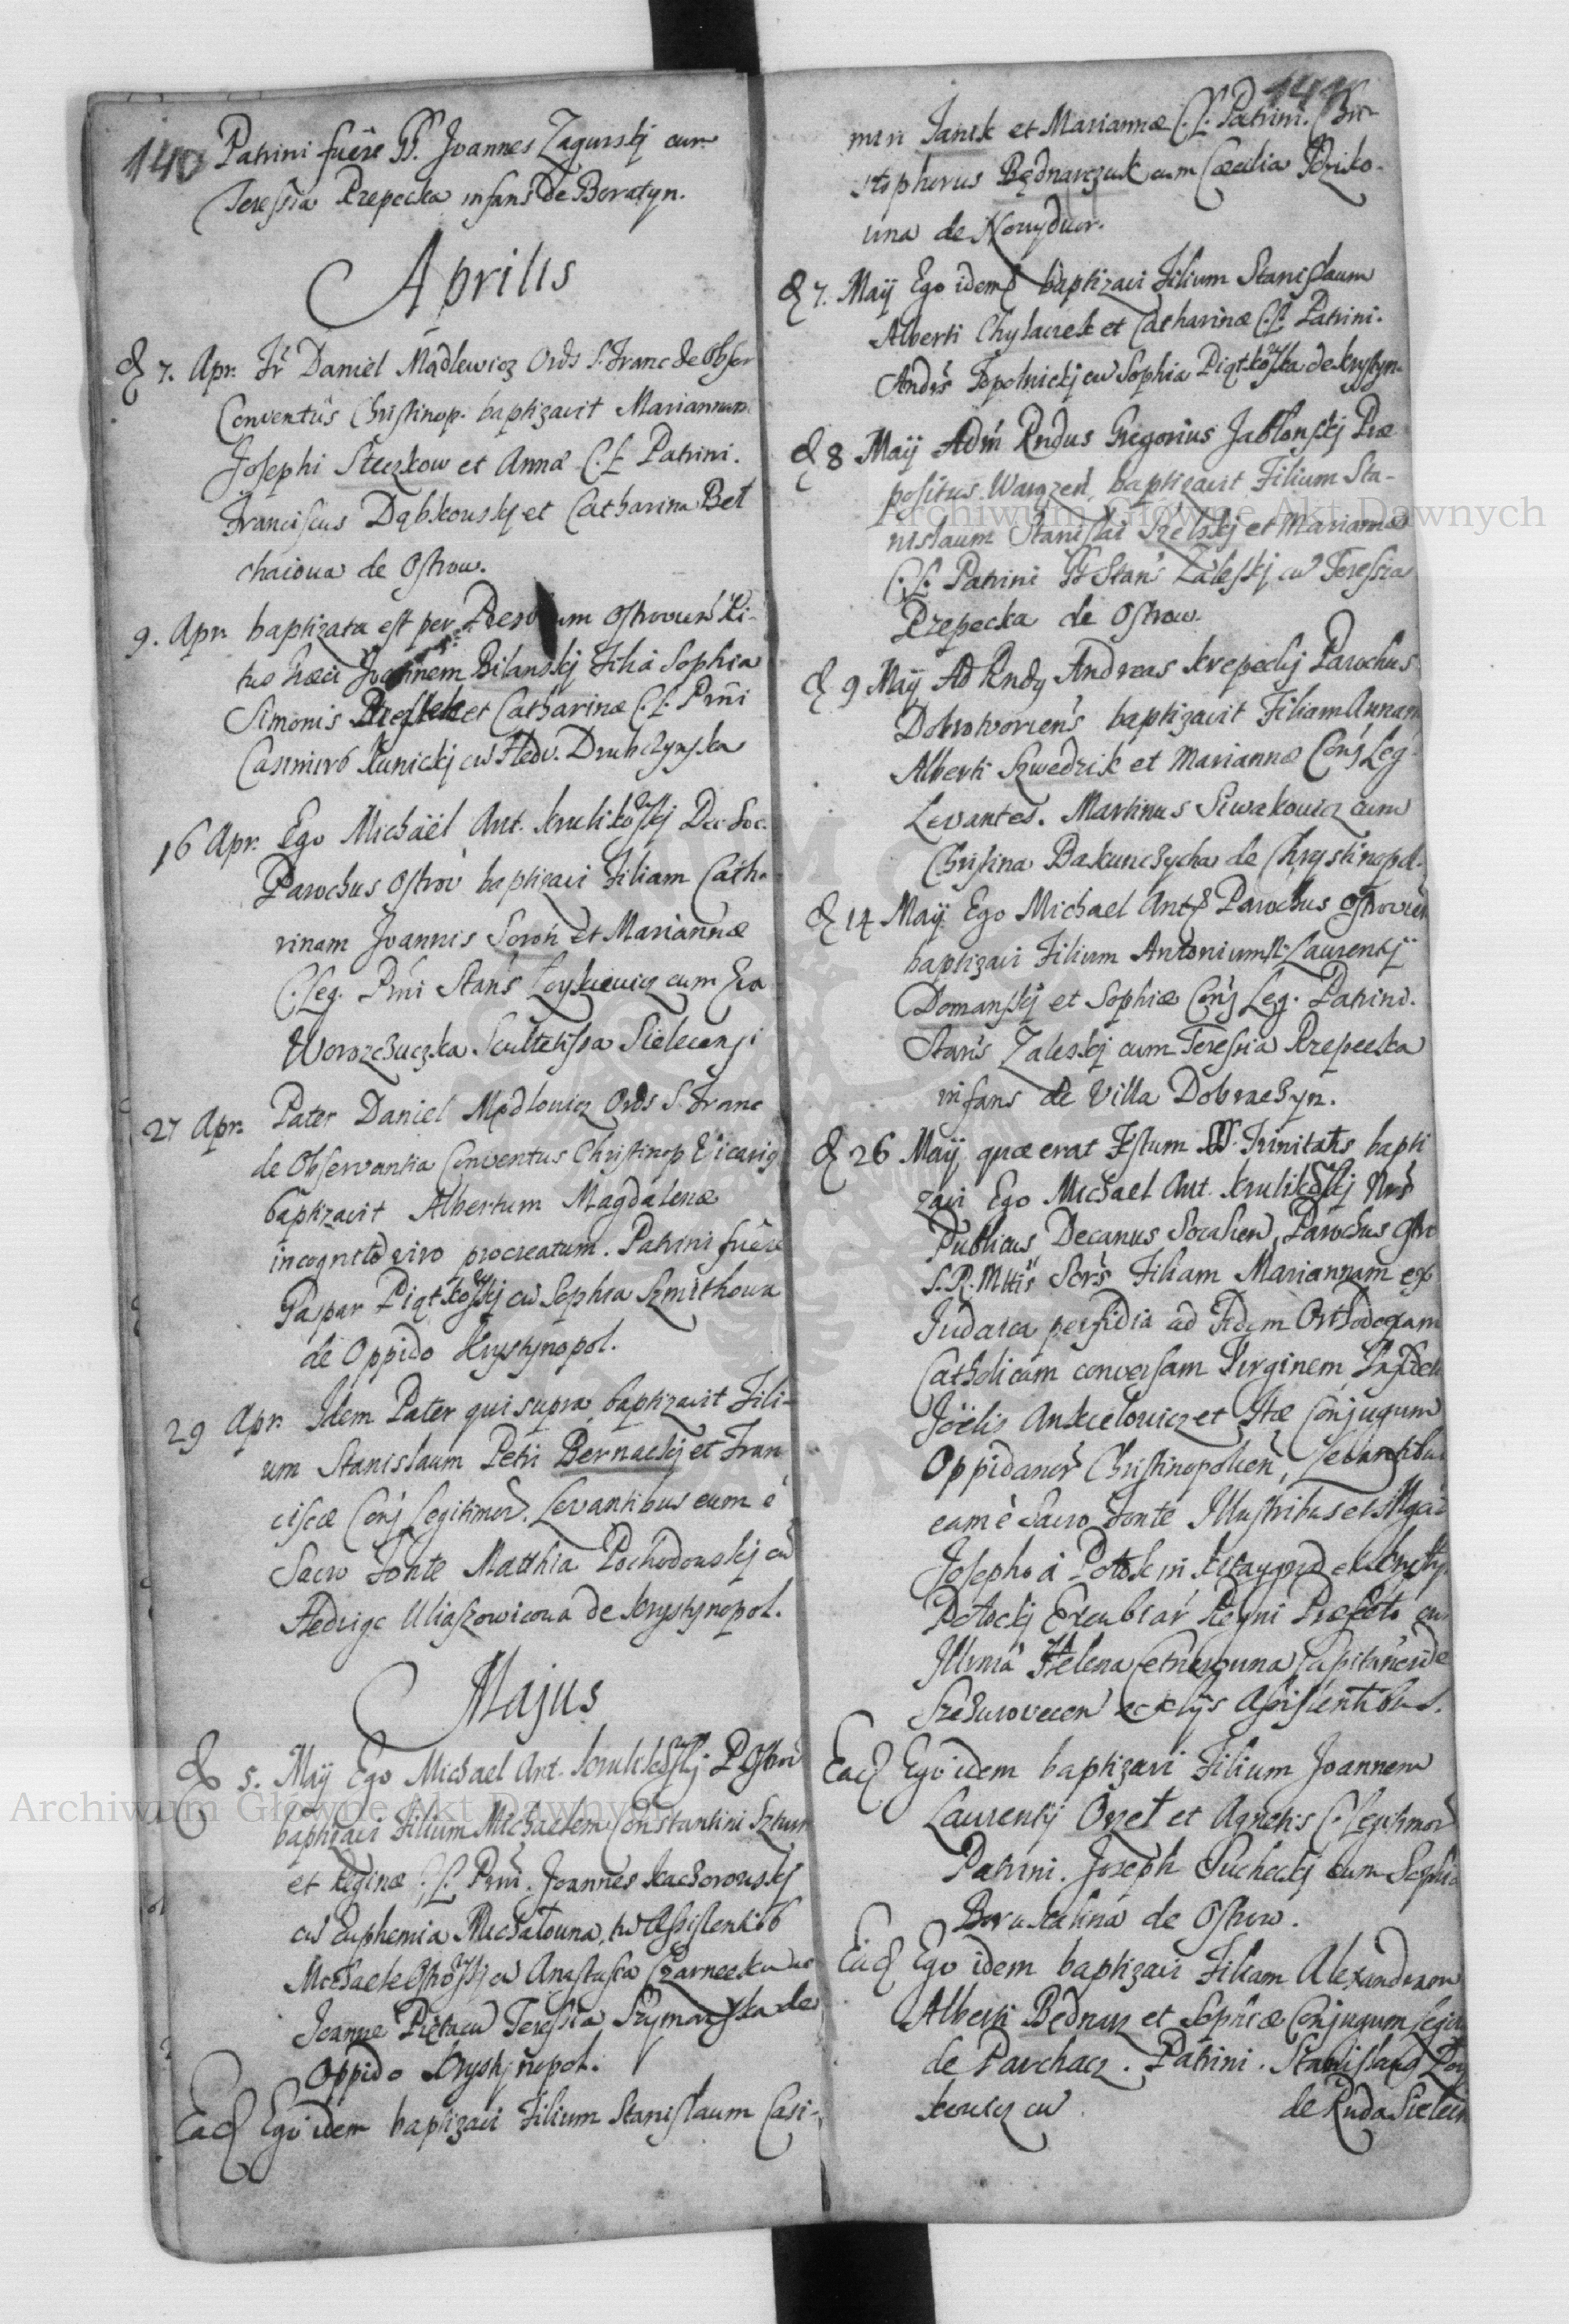 140
Patrini fuêre GG. Joannes Zagurskj cum
Teressia Rzepecka infans de Boratyn.
Aprilis
d 7. Apr. Fr Daniel Mądlewicz Ords S. Franc de Obser
Conventûs Christinop. baptizavit Mariannam
Josephi Steczkow et Annæ C. L. Patrini.
Franciscus Dąbkouskj et Catharina Bet
chaioua de Ostrow.
9. Apr. baptizata est per Ostrouień Ri-
tus Græci Joannem Bilanskj Filia Sophia
Simonis et Catharinæ C. L. Prni
Casimirg Kunickj cū Hedv. Drubczynska
16 Apr. Ego Michaël Ant. Krulikoskj Dec. Soc.
Parochus Ostrov baptizavi Filiam Catha
rinam Joannis Soroh et Mariannæ
C. Leg. Prni Stans Loyskieuicz cum Eva
Worozchuczka Scultetissa Sielecensi
27 Apr. Pater Daniel Mądlouicz Ords S. Franc
de Observantia Conventus Christinop Vicarig
baptizavit Albertum Magdalenæ
incognito viro procreatum. Patrini fuêre
Gaspar Piątkoskj cū Sophia Szmithoua
de Oppido Krystynopol.
29 Apr. Idem Pater qui supra baptizavit Fili-
um Stanislaum Petri Bernackj et Fran
ciscæ Conj Legitimor. Levantibus eum è
Sacro Fonte Matthia Pochodouskj cū
Hedvige Uliaszowicoua de Krystynopol.
Majus
d 5. Maÿ Ego Michael Ant. Krulikoskj P Ostrov
baptizavi Filium Michaelem Constantini Sztur
et Reginæ C. L. Prni. Joannes Kaczorouskj
cū Euphemia Michałouna, Assistentibg
Michaele Ostroskj cū Anastasia Czarnecka ac
Joanne Pięta cū Teressia Szymańska de
Oppido Krystynopol.
Ead Ego idem baptizavi Filium Stanislaum Casi-
141
miri Janik et Mariannæ C. L. Patrini. Chri
stophorus Bednarczuk cum Cæcilia Idziko-
una de Nouydwor.
d 7. Maÿ Ego idem baptizavi Filium Stanislaum
Alberti Chylaczek et Catharinæ C. L. Patrini.
Andrs Topolnickj cū Sophia Piątkoska de Krystyn
d 8 Maÿ Adm Rndus Gregorius Jabłonskj Præ
positus Warązen, baptizavit Filium Sta-
nislaum Stanislai Szelskj et Mariannæ
C. L. Patrini GG Stans Zaleskj cū Teressia
Rzepecka de Ostrow.
d 9 Maÿ Ad Rndg Andreas Krepeckj Parochus
Dobrotworiens baptizavit Filiam Annam
Alberti Szwedzik et Mariannæ Conj Leg.
Levantes. Martinus Siwakouicz cum
Christina Bakunczycha de Chrystinopol.
d 14 Maÿ Ego Michael Ants Parochus Ostrouien
baptizavi Filium Antonium Laurentÿ
Domanskj et Sophiæ Conj Leg. Patrini.
Stans Zaleskj cum Teressia Rzepecka
infans de Villa Dobraczyn.
d 26 Maÿ quæ erat Festum SS. Trinitatis bapti
zavi Ego Michael Ant. Krulikoskj Nrs
Publicus, Decanus Socalien, Parochus Ostro
S. R. Mttis Sers Filiam Mariannam ex
Judaica perfidia ad Fidem Orthodoxam
Catholicam conversam Virginem
Joëlis Ankielouicz et Conjugum
Oppidanor Christinopolien, Levantibus
eam è Sacro Fonte Illustribus et Mgcis
Josepho à Potok in Kitaygrod et Krysty
Potockj Excubiar Regni Præfecto cū
Illrma Helena Cetnerouna Capitaneide
Szczurovecen et alÿs Assistentibus.
Ead Ego idem baptizavi Filium Joannem
Laurentÿ Orzeł et Agnetis C. Legitimor
Patrini. Joseph Puchackj cum Sophia
de Ostrow.
Ead Ego idem baptizavi Filiam Alexandram
Alberti Bednarz et Sophiæ Conjugum Legit
de Parchacz. Patrini. Stanislaus Loy
skeuicz cū de Ruda Sielecn
Archiwum Główne Akt Dawnych
Archiwum Główne Akt Dawnych